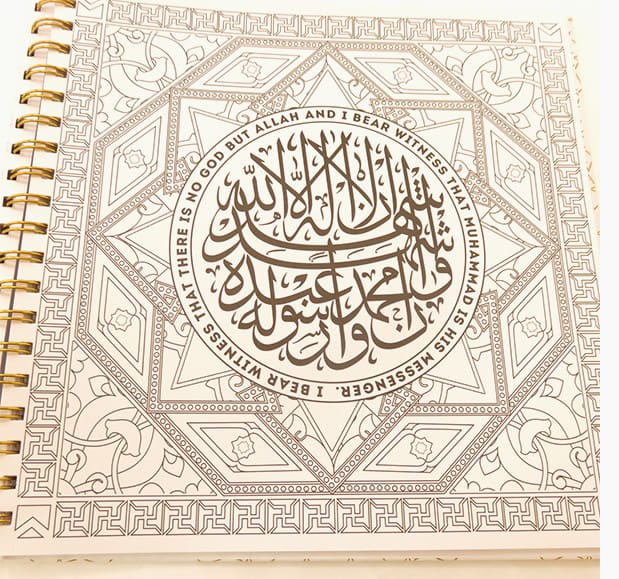 I BEAR WITNESS THAT THERE IS NO GOD BUT ALLAH AND I BEAR WITNESS THAT MUHAMMAD IS HIS MESSENGER.
اشهد ان لا اله الا الله واشهد ان محمدا عبده ورسوله